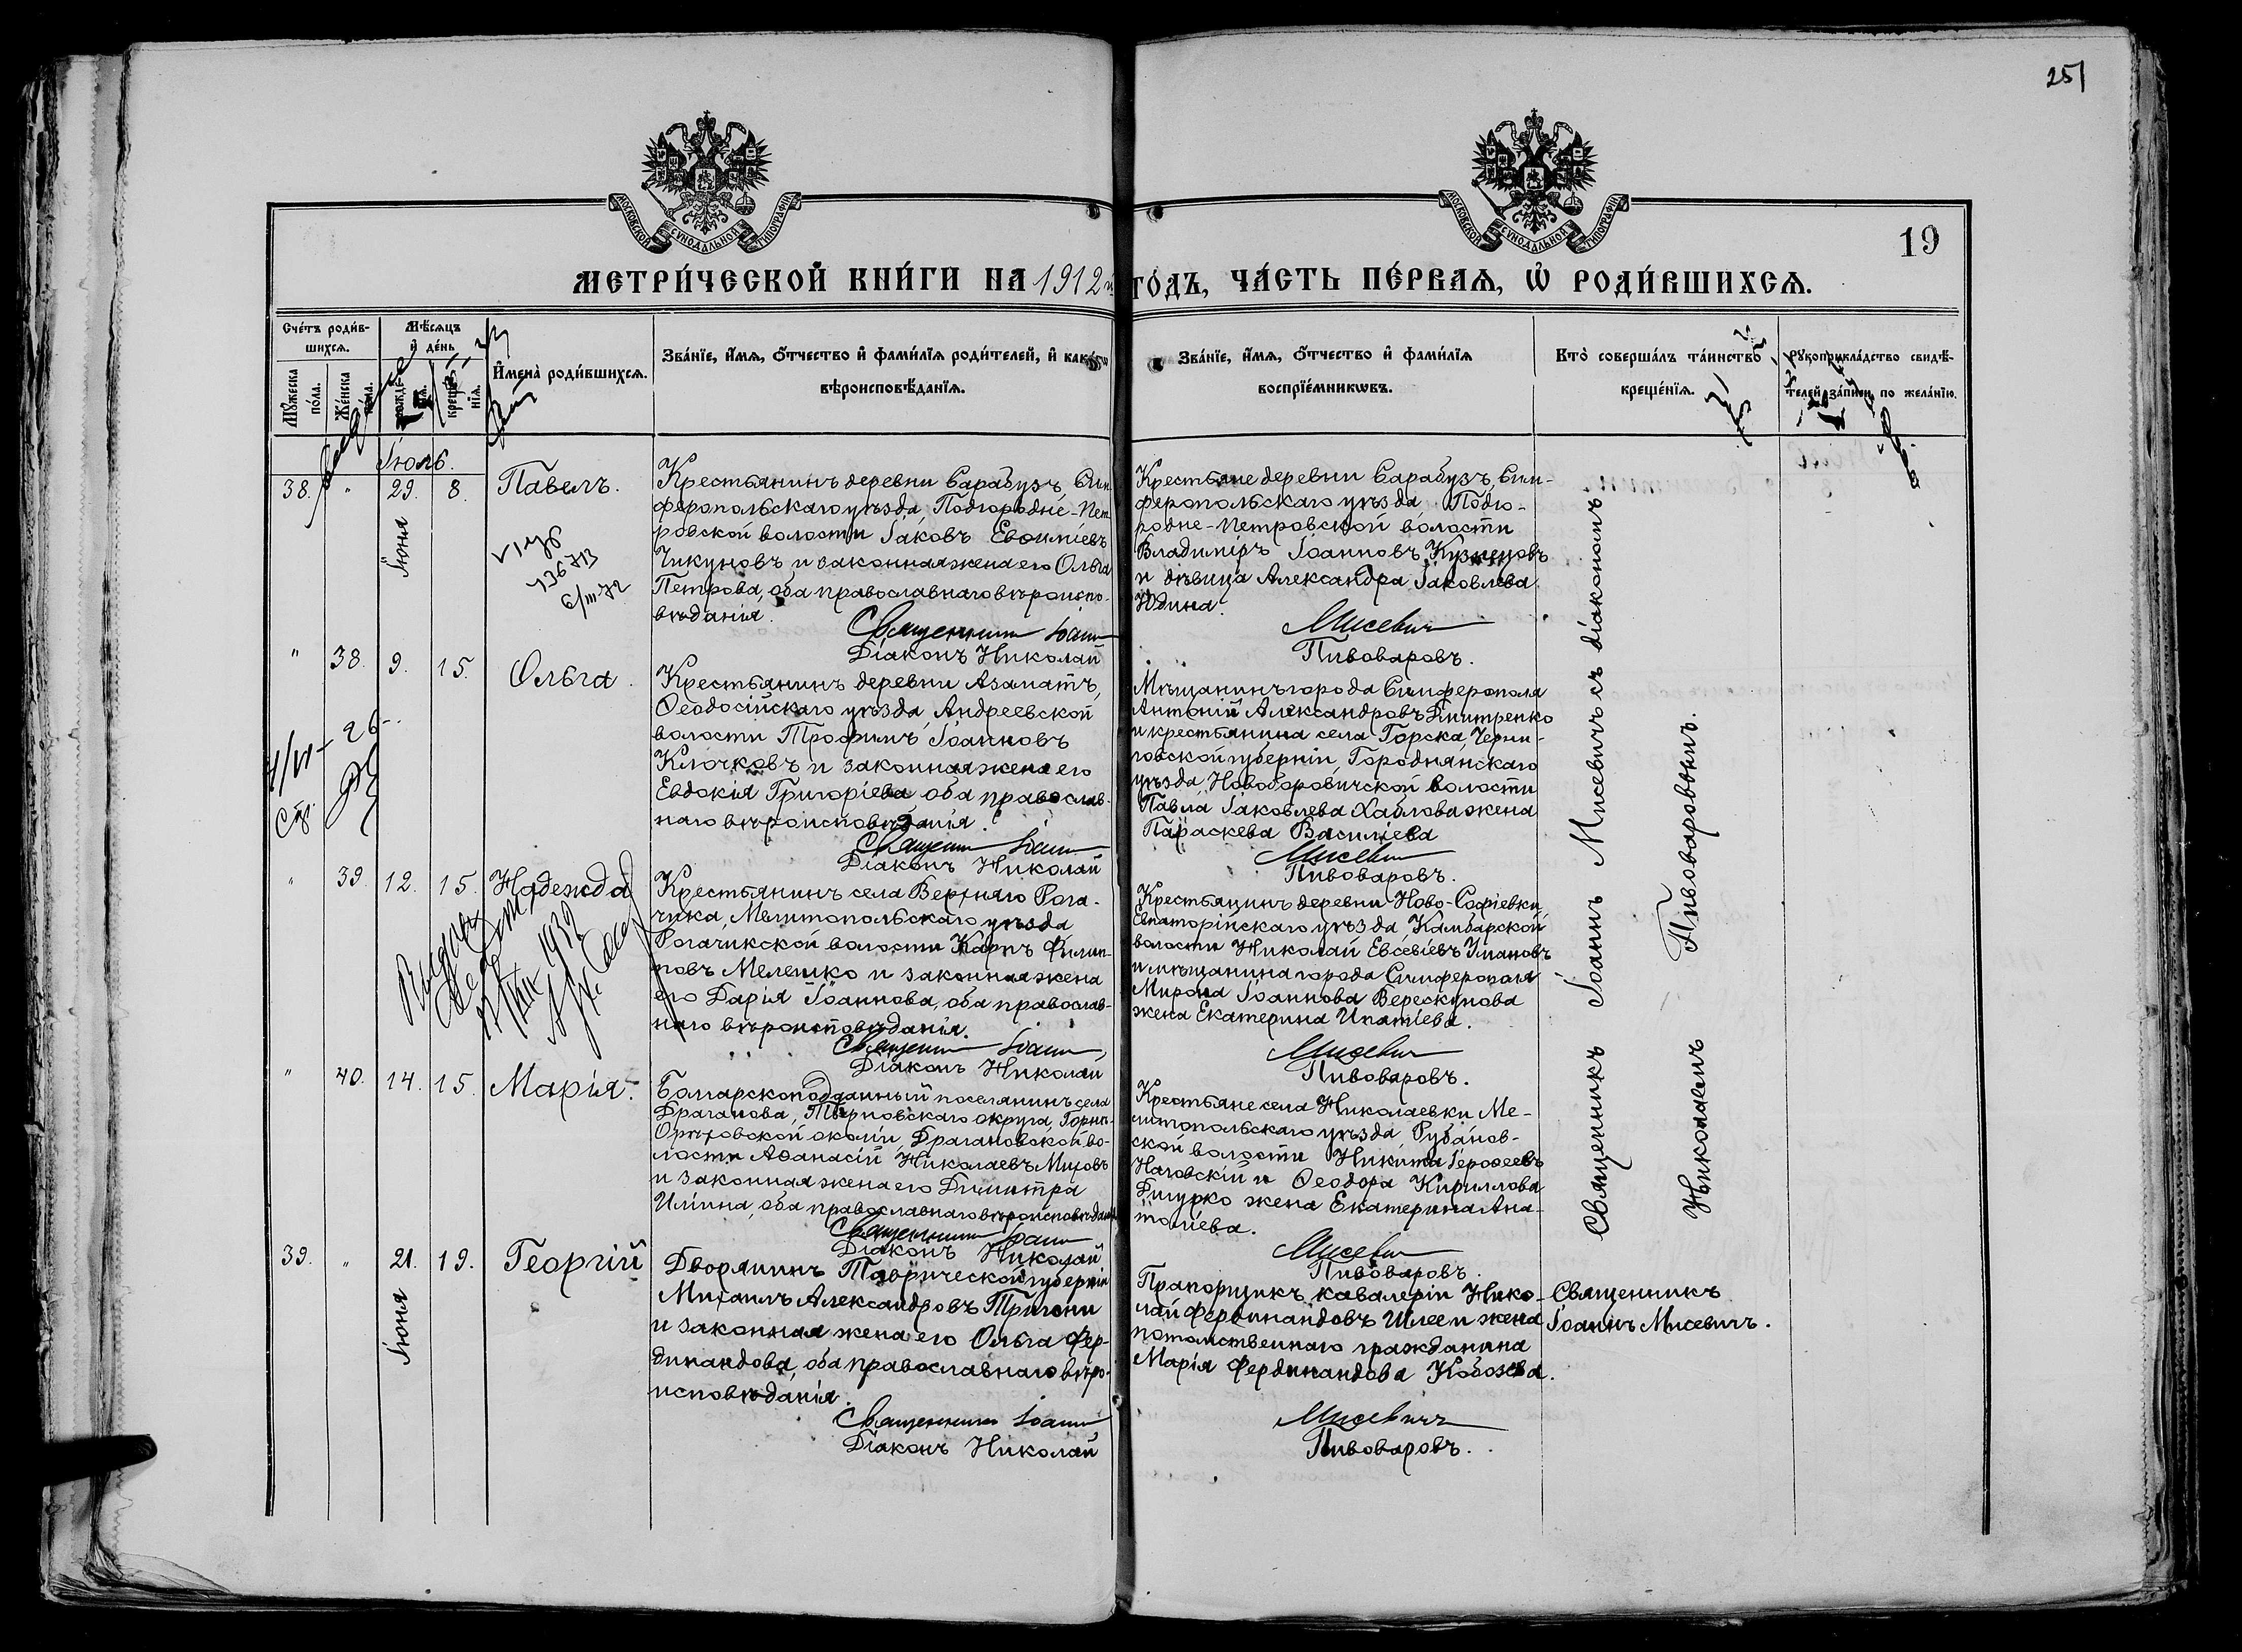 251
МОСКОВСКОЙ СѴНОДАЛЬНОЙ ТИПОГРАФІИ
МОСКОВСКОЙ СѴНОДАЛЬНОЙ ТИПОГРАФІИ
19
МЕТРИ́ЧЕСКОЙ КНИ́ГИ НА 1912 й ГО́ДЪ, ЧА́СТЬ ПЕ́РВАЯ, Ѡ҆ РОДИ́ВШИХСЯ.
Сче́тъ роди́в-
шихся.
Мѣ́сяцъ
и҆ де́нь
Мꙋ́жеска по́ла.
Же́нска по́ла.
рожде́-нїя.
креще́-нїя.
И҆мена̀ роди́вшихся.
Зва́нїе, и҆́мя, ѻ҆́тчество и҆ фами́лїя роди́телей, и҆ како́гѡ
вѣроисповѣ́данїя.
Зва́нїе, и҆́мя, ѻ҆́тчество и҆ фами́лїя
воспрїе́мникѡвъ.
Кто̀ соверша́лъ та́инство
креще́нїя.
Рꙋкоприкла́дство свидѣ́-
телей за́писи по жела́нїю.
Іюль.
38. " 29. 8. Павелъ.
Іюня
Крестьянинъ деревни Сарабузъ, Сим-
феропольскаго уѣзда, Подгородне-Пет
ровской волости Іаковъ Евѳиміевъ
Чикуновъ и законная жена его Ольга
Петрова, оба православнаго вѣроиспо-
вѣданія.
Священникъ Іоаннъ
Діаконъ Николай
Крестьяне деревни Сарабузъ, Сим-
феропольскаго уѣзда Подго-
родне-Петровской волости
Владиміръ Іоанновъ Кузнецовъ
и дѣвица Александра Іаковлева
Юдина.
Мисевичъ
Пивоваровъ.
" 38. 9. 15. Ольга.
26
Крестьянинъ деревни Азаматъ,
Ѳеодосійскаго уѣзда, Андреевской
волости Трофимъ Іоанновъ
Клочковъ и законная жена его
Евдокія Григоріева, оба православ-
наго вѣроисповѣданія.
Священникъ Іоаннъ
Діаконъ Николай
Мѣщанинъ города Симферополя
Антоній Александровъ Дмитренко
и крестьянина села Горска, Черни-
говской губерніи, Городнянскаго
уѣзда, Новоборовичской волости
Павла Іаковлева Хаблова жена
Параскева Василіева
Мисевичъ
Пивоваровъ.
" 39. 12. 15. Надежда
1932
Крестьянинъ села Верхняго Рога-
чика, Мелитопольскаго уѣзда
Рогачикской волости Карпъ Филип-
повъ Мелешко и законная жена
его Дарія Іоаннова, оба православ-
наго вѣроисповѣданія.
Священникъ Іоаннъ
Діаконъ Николай
Крестьянинъ деревни Ново-Софіевки
Евпаторійскаго уѣзда, Камбарской
волости Николай Евсевіевъ Умановъ
и мѣщанина города Симферополя
Мирона Іоаннова Верескунова
жена Екатерина Ипатіева.
Мисевичъ
Пивоваровъ.
" 40. 14. 15. Марія.
Болгарскоподданный поселянинъ села
Драганова, Тырновскаго округа, Горнѣ-
Орѣховской околіи, Драгановской во-
лости Аѳанасій Николаевъ Миховъ
и законная жена его Димитра
Иліина, оба православнаго вѣроисповѣданія
Священникъ Іоаннъ
Діаконъ Николай
Крестьяне села Николаевки Ме-
литопольскаго уѣзда, Рубанов-
ской волости Никита Героѳеевъ
Наговскій и Ѳеодора Кириллова
Бигурко жена Екатерина Ана-
толіева.
Мисевичъ
Пивоваровъ.
39. " 21. 19. Георгій
Іюня
Дворянинъ Таврической губерніи
Михаилъ Александровъ Тригони
и законная жена его Ольга Фер-
динандова, оба православнаго вѣро-
исповѣданія.
Священникъ Іоаннъ
Діаконъ Николай
Прапорщикъ кавалеріи Нико-
лай Фердинандовъ Шлее и жена
потомственнаго гражданина
Марія Фердинандова Кобозева.
Мисевичъ
Пивоваровъ.
Священникъ Іоаннъ Мисевичъ съ діакономъ
Николаемъ Пивоваровымъ.
Священникъ
Іоаннъ Мисевичъ.